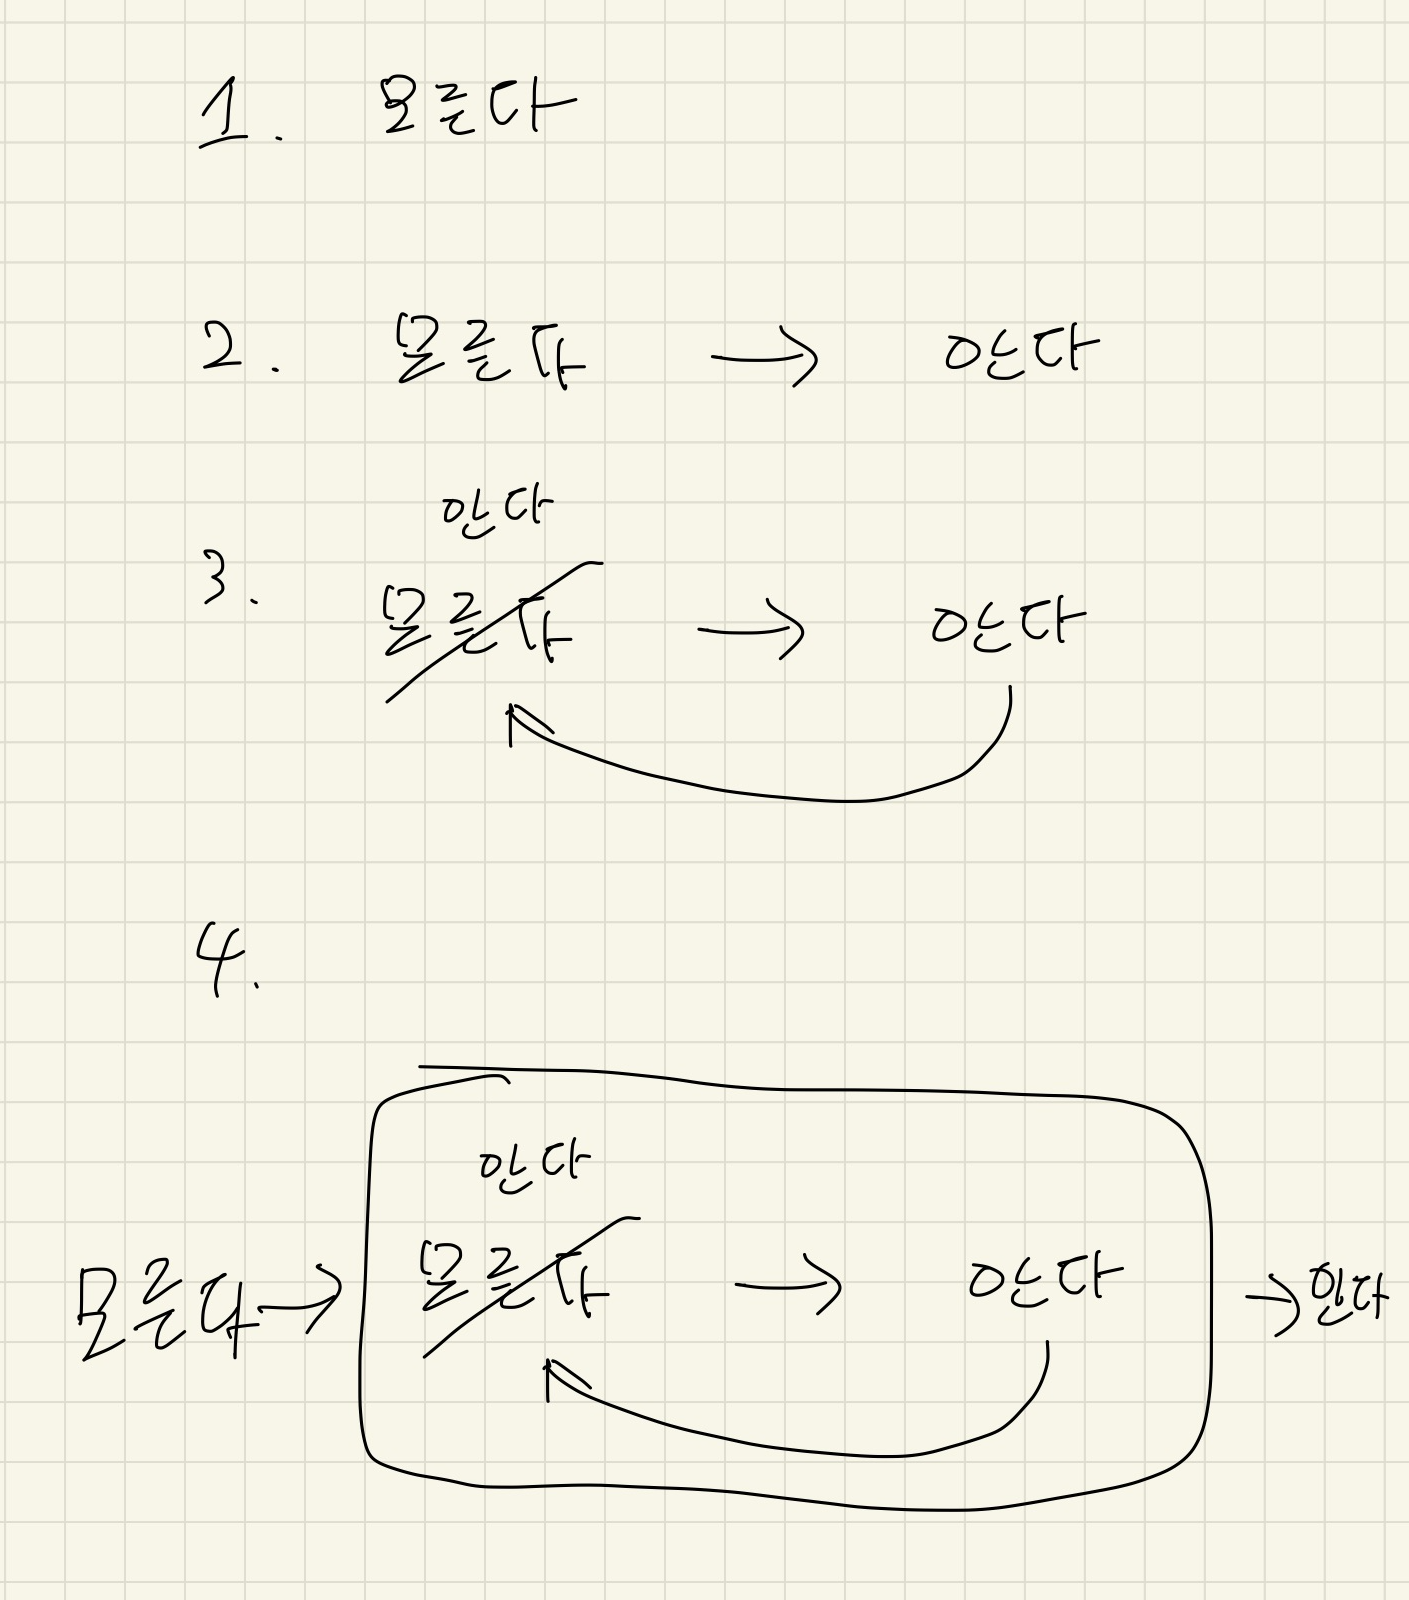 1. 모른다
2. 모른다 → 안다
안다
3. 모른다 → 안다
4.
안다
모른다 → 모른다 → 안다 → 안다